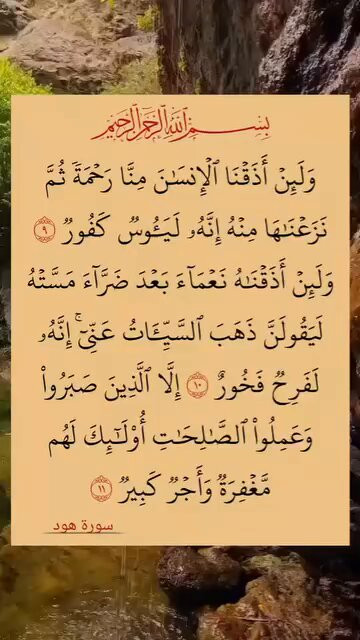 بِسْمِ ٱللَّهِ ٱلرَّحْمَٰنِ ٱلرَّحِيمِ
وَلَئِنْ أَذَقْنَا ٱلْإِنسَٰنَ مِنَّا رَحْمَةً ثُمَّ
نَزَعْنَٰهَا مِنْهُ إِنَّهُۥ لَيَـُٔوسٌ كَفُورٌ ٩
وَلَئِنْ أَذَقْنَٰهُ نَعْمَآءَ بَعْدَ ضَرَّآءَ مَسَّتْهُ
لَيَقُولَنَّ ذَهَبَ ٱلسَّيِّـَٔاتُ عَنِّىٓ ۚ إِنَّهُۥ
لَفَرِحٌ فَخُورٌ ١٠ إِلَّا ٱلَّذِينَ صَبَرُوا۟
وَعَمِلُوا۟ ٱلصَّٰلِحَٰتِ أُو۟لَٰٓئِكَ لَهُم
مَّغْفِرَةٌ وَأَجْرٌ كَبِيرٌ ١١
سورة هود